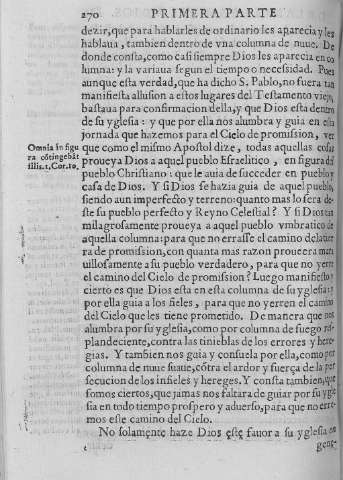 270 PRIMERA PARTE
dezir, que para hablarles de ordinario les aparecia y les
hablaua, tambien dentro de vna columna de nuue. De
donde consta, como casi siempre Dios les aparecia en co
lumna: y la variaua segun el tiempo o necessidad. Pues
aunque esta verdad, que ha dicho S. Pablo, no fuera tan
manifiesta allusion a estos lugares del Testamento viejo,
bastaua para confirmacion della, y que Dios esta dentro
de su yglesia: y que por ella nos alumbra y guia en esta
jornada que hazemos para el Cielo de promission, ver
que como el mismo Apostol dize, todas aquellas cosas
proueya Dios a aquel pueblo Esraelitico, en figura del
pueblo Christiano: que le auia de succeder en pueblo y
casa de Dios. Y si Dios se hazia guia de aquel pueblo,
siendo aun imperfecto y terreno: quanto mas lo sera de
ste su pueblo perfecto y Reyno Celestial? Y si Dios tan
milagrosamente proueya a aquel pueblo vmbratico de
aquella columna: para que no errasse el camino de la tie
rra de promission, con quanta mas razon proueera mara
uillosamente a su pueblo verdadero, para que no yerre
el camino del Cielo de promission? Luego manifiesto y
cierto es que Dios esta en esta columna de su yglesia: y
por ella guia a los fieles, para que no yerren el camino
del Cielo que les tiene prometido. De manera que nos
alumbra por su yglesia, como por columna de fuego res
plandeciente, contra las tinieblas de los errores y here
gias. Y tambien nos guia y consuela por ella, como por
columna de nuue suaue, cõtra el ardor y fuerça de la per
secucion de los infieles y hereges. Y consta tambien, que
somos ciertos, que jamas nos faltara de guiar por su ygle
sia en todo tiempo prospero y aduerso, para que no erre
mos este camino del Cielo.
No solamente haze Dios este fauor a su yglesia en
gene-
Omnia in figu
ra cõtingebãt
illis. 1. Cor. 10.